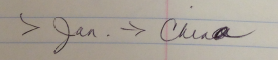 > Jan. → China